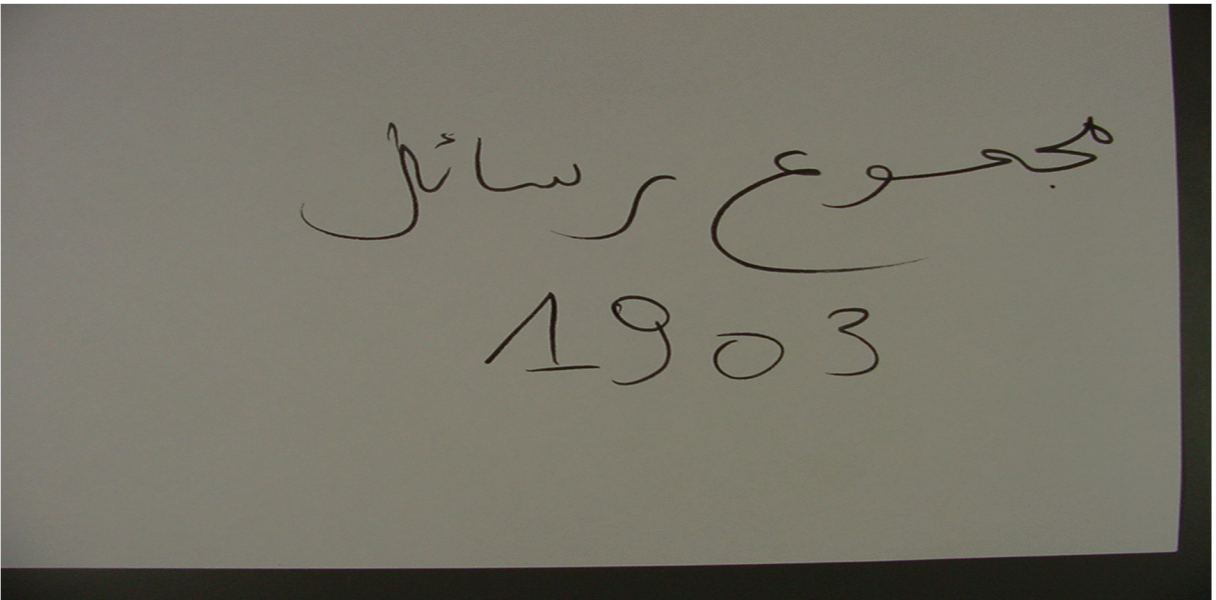 مجموع رسائل
1903